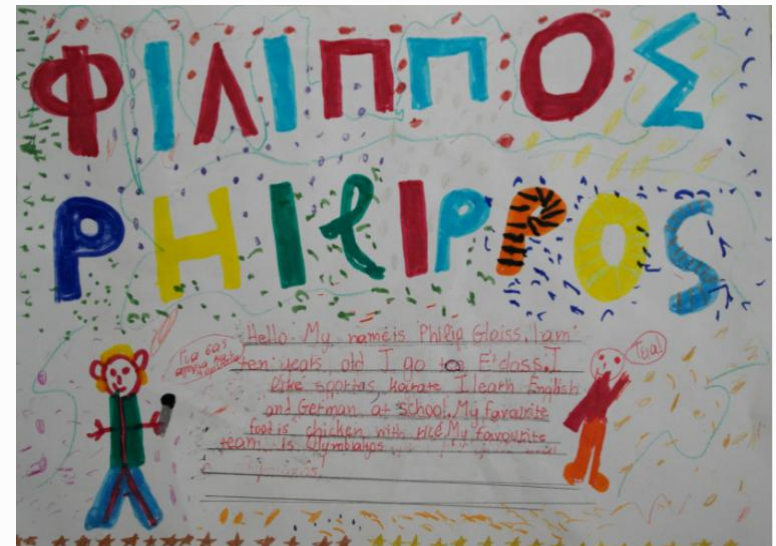 ΦΙΛΙΠΠΟΣ
PHILIPPOS
Hello. My name is Philip Glaiss. I am
ten years old I go to E'class. I
like sportas, karate I learn English
and German at school. My favourite
food is chicken with rice My favourite
team is Olymbiahos
Γεια σας
Γεια!